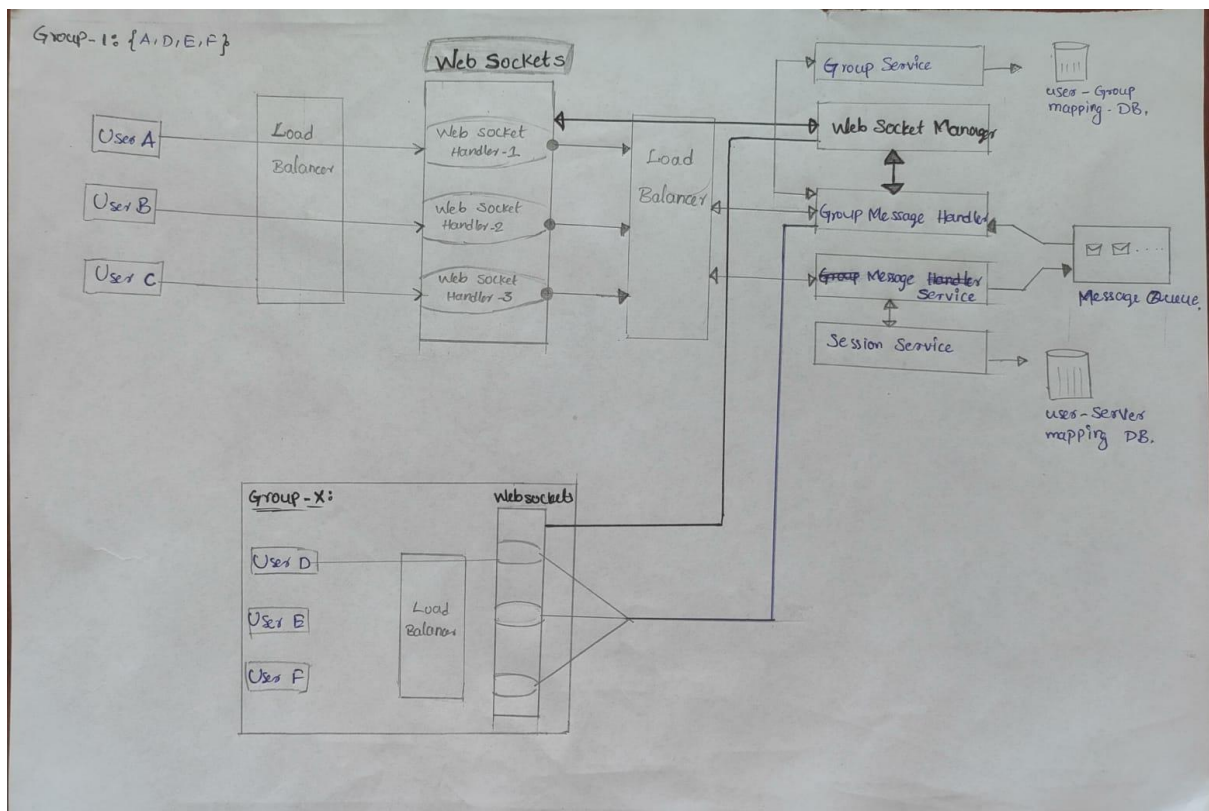 Group-1: {A,D,E,F}
Web Sockets
User A
User B
User C
Load
Balancer
Web Socket
Handler-1
Web Socket
Handler-2
Web Socket
Handler-3
Load
Balancer
Group Service
Web Socket Manager
Group Message Handler
Group Message Handler
Service
Session Service
user-Group
mapping-DB.
Message Queue.
user-Server
mapping DB.
Group-X:
Websockets
User D
User E
User F
Load
Balancer